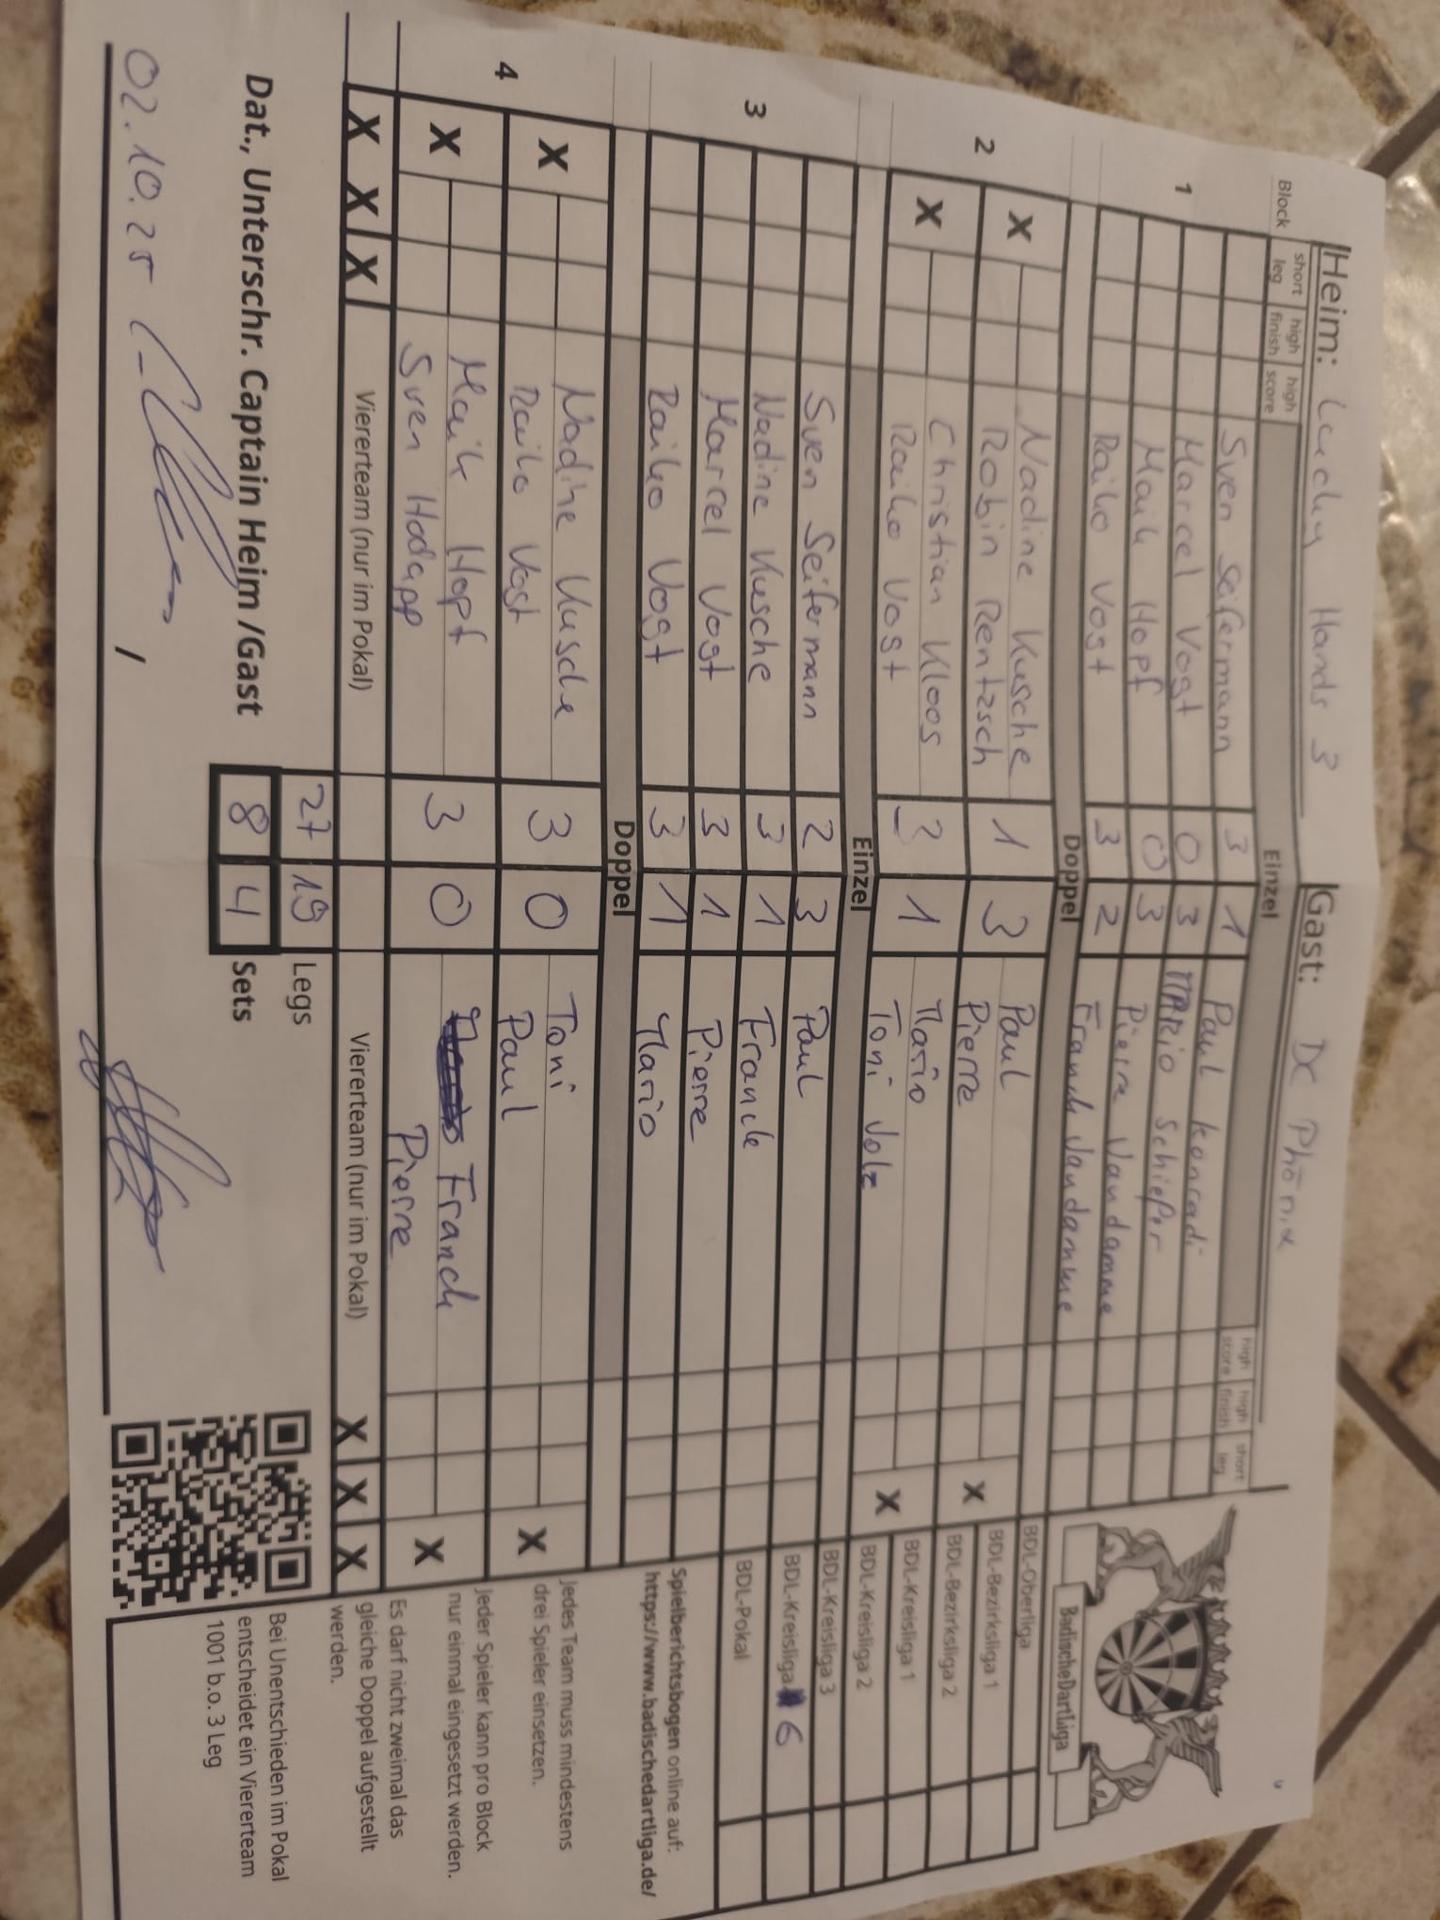 Heim: Lucky Hands 3 Gast: DC Phönix
Block short leg high finish high score Einzel high score high finish short leg
1 Sven Seifermann 3 1 Paul Konradi
Marcel Vogt 0 3 MARIO Schiefer
Maik Hopf 0 3 Pierre Vandamme
Raiko Vogt 3 2 Franck Vandamme
Doppel
2 X Nadine Kusche 1 3 Paul X
Robin Rentzsch Pierre
X Christian Kloos 3 1 Mario X
Raiko Vogt Toni Volz
Einzel
3 Sven Seifermann 2 3 Paul
Nadine Kusche 3 1 Franck
Marcel Vogt 3 1 Pierre
Raiko Vogt 3 1 Mario
Doppel
4 X Nadine Kusche 3 0 Toni X
Raiko Vogt Paul
X Maik Hopf 3 0 Franck X
Sven Hodapp Pierre
X X X Viererteam (nur im Pokal) Viererteam (nur im Pokal) X X X
27 19 Legs
Dat., Unterschr. Captain Heim /Gast 8 4 Sets
02.10.25
,
BadischeDartLiga
BDL-Oberliga
BDL-Bezirksliga 1
BDL-Bezirksliga 2
BDL-Kreisliga 1
BDL-Kreisliga 2
BDL-Kreisliga 3
BDL-Kreisliga 6
BDL-Pokal
Spielberichtsbogen online auf:
https://www.badischedartliga.de/
Jedes Team muss mindestens
drei Spieler einsetzen.
Jeder Spieler kann pro Block
nur einmal eingesetzt werden.
Es darf nicht zweimal das
gleiche Doppel aufgestellt
werden.
Bei Unentschieden im Pokal
entscheidet ein Viererteam
1001 b.o. 3 Leg